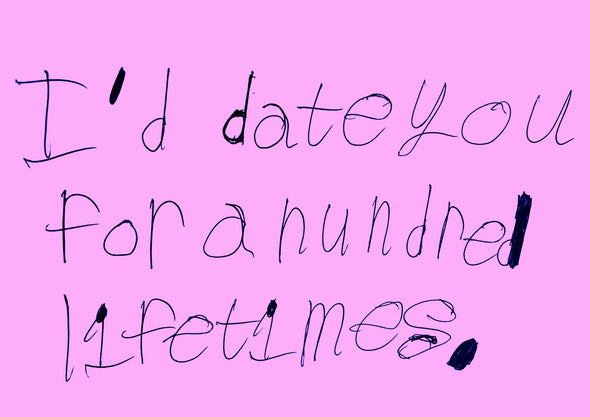 I'd date you
for a hundred
lifetimes.